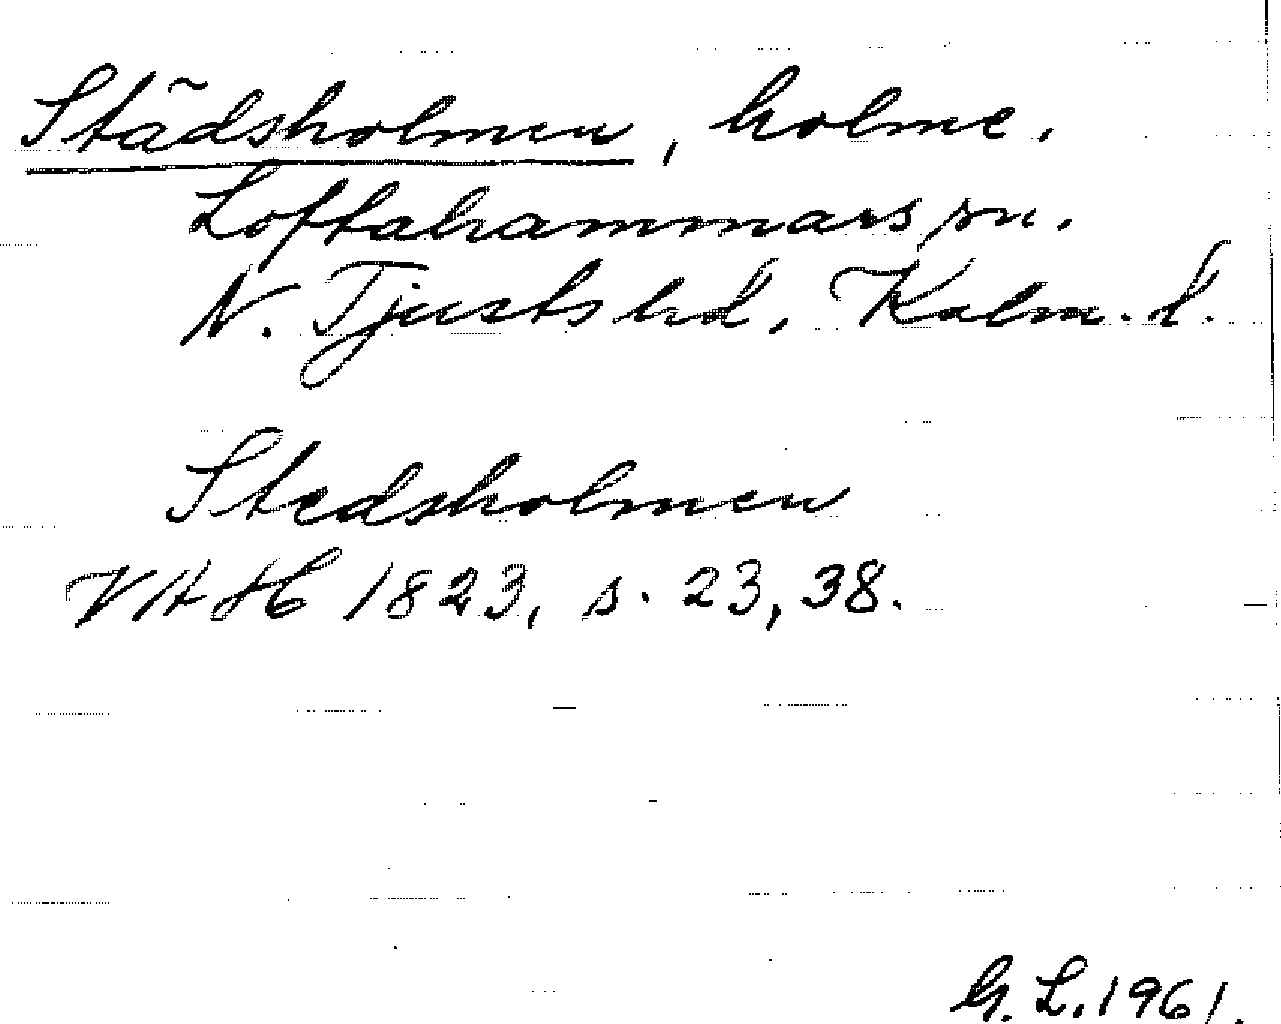 Städsholmen, holme.
Loftahammars sn.
N. Tjusts hd, Kalm. l.
Stedsholmen
VHAH 1823, s. 23, 38.
G. L. 1961.